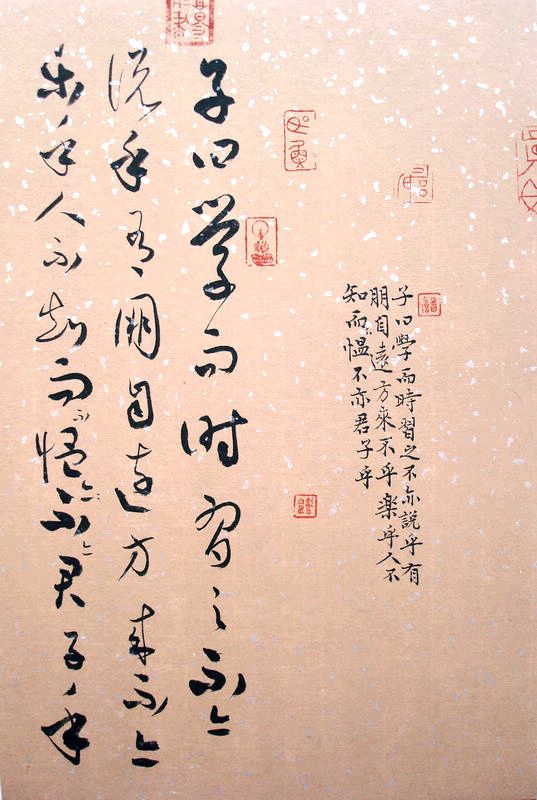 子曰學而時習之不亦
說乎有朋自遠方來不亦
樂乎人不知而不慍不亦君子乎
子曰學而時習之不亦說乎有
朋自遠方來不乎樂乎人不
知而慍不亦君子乎